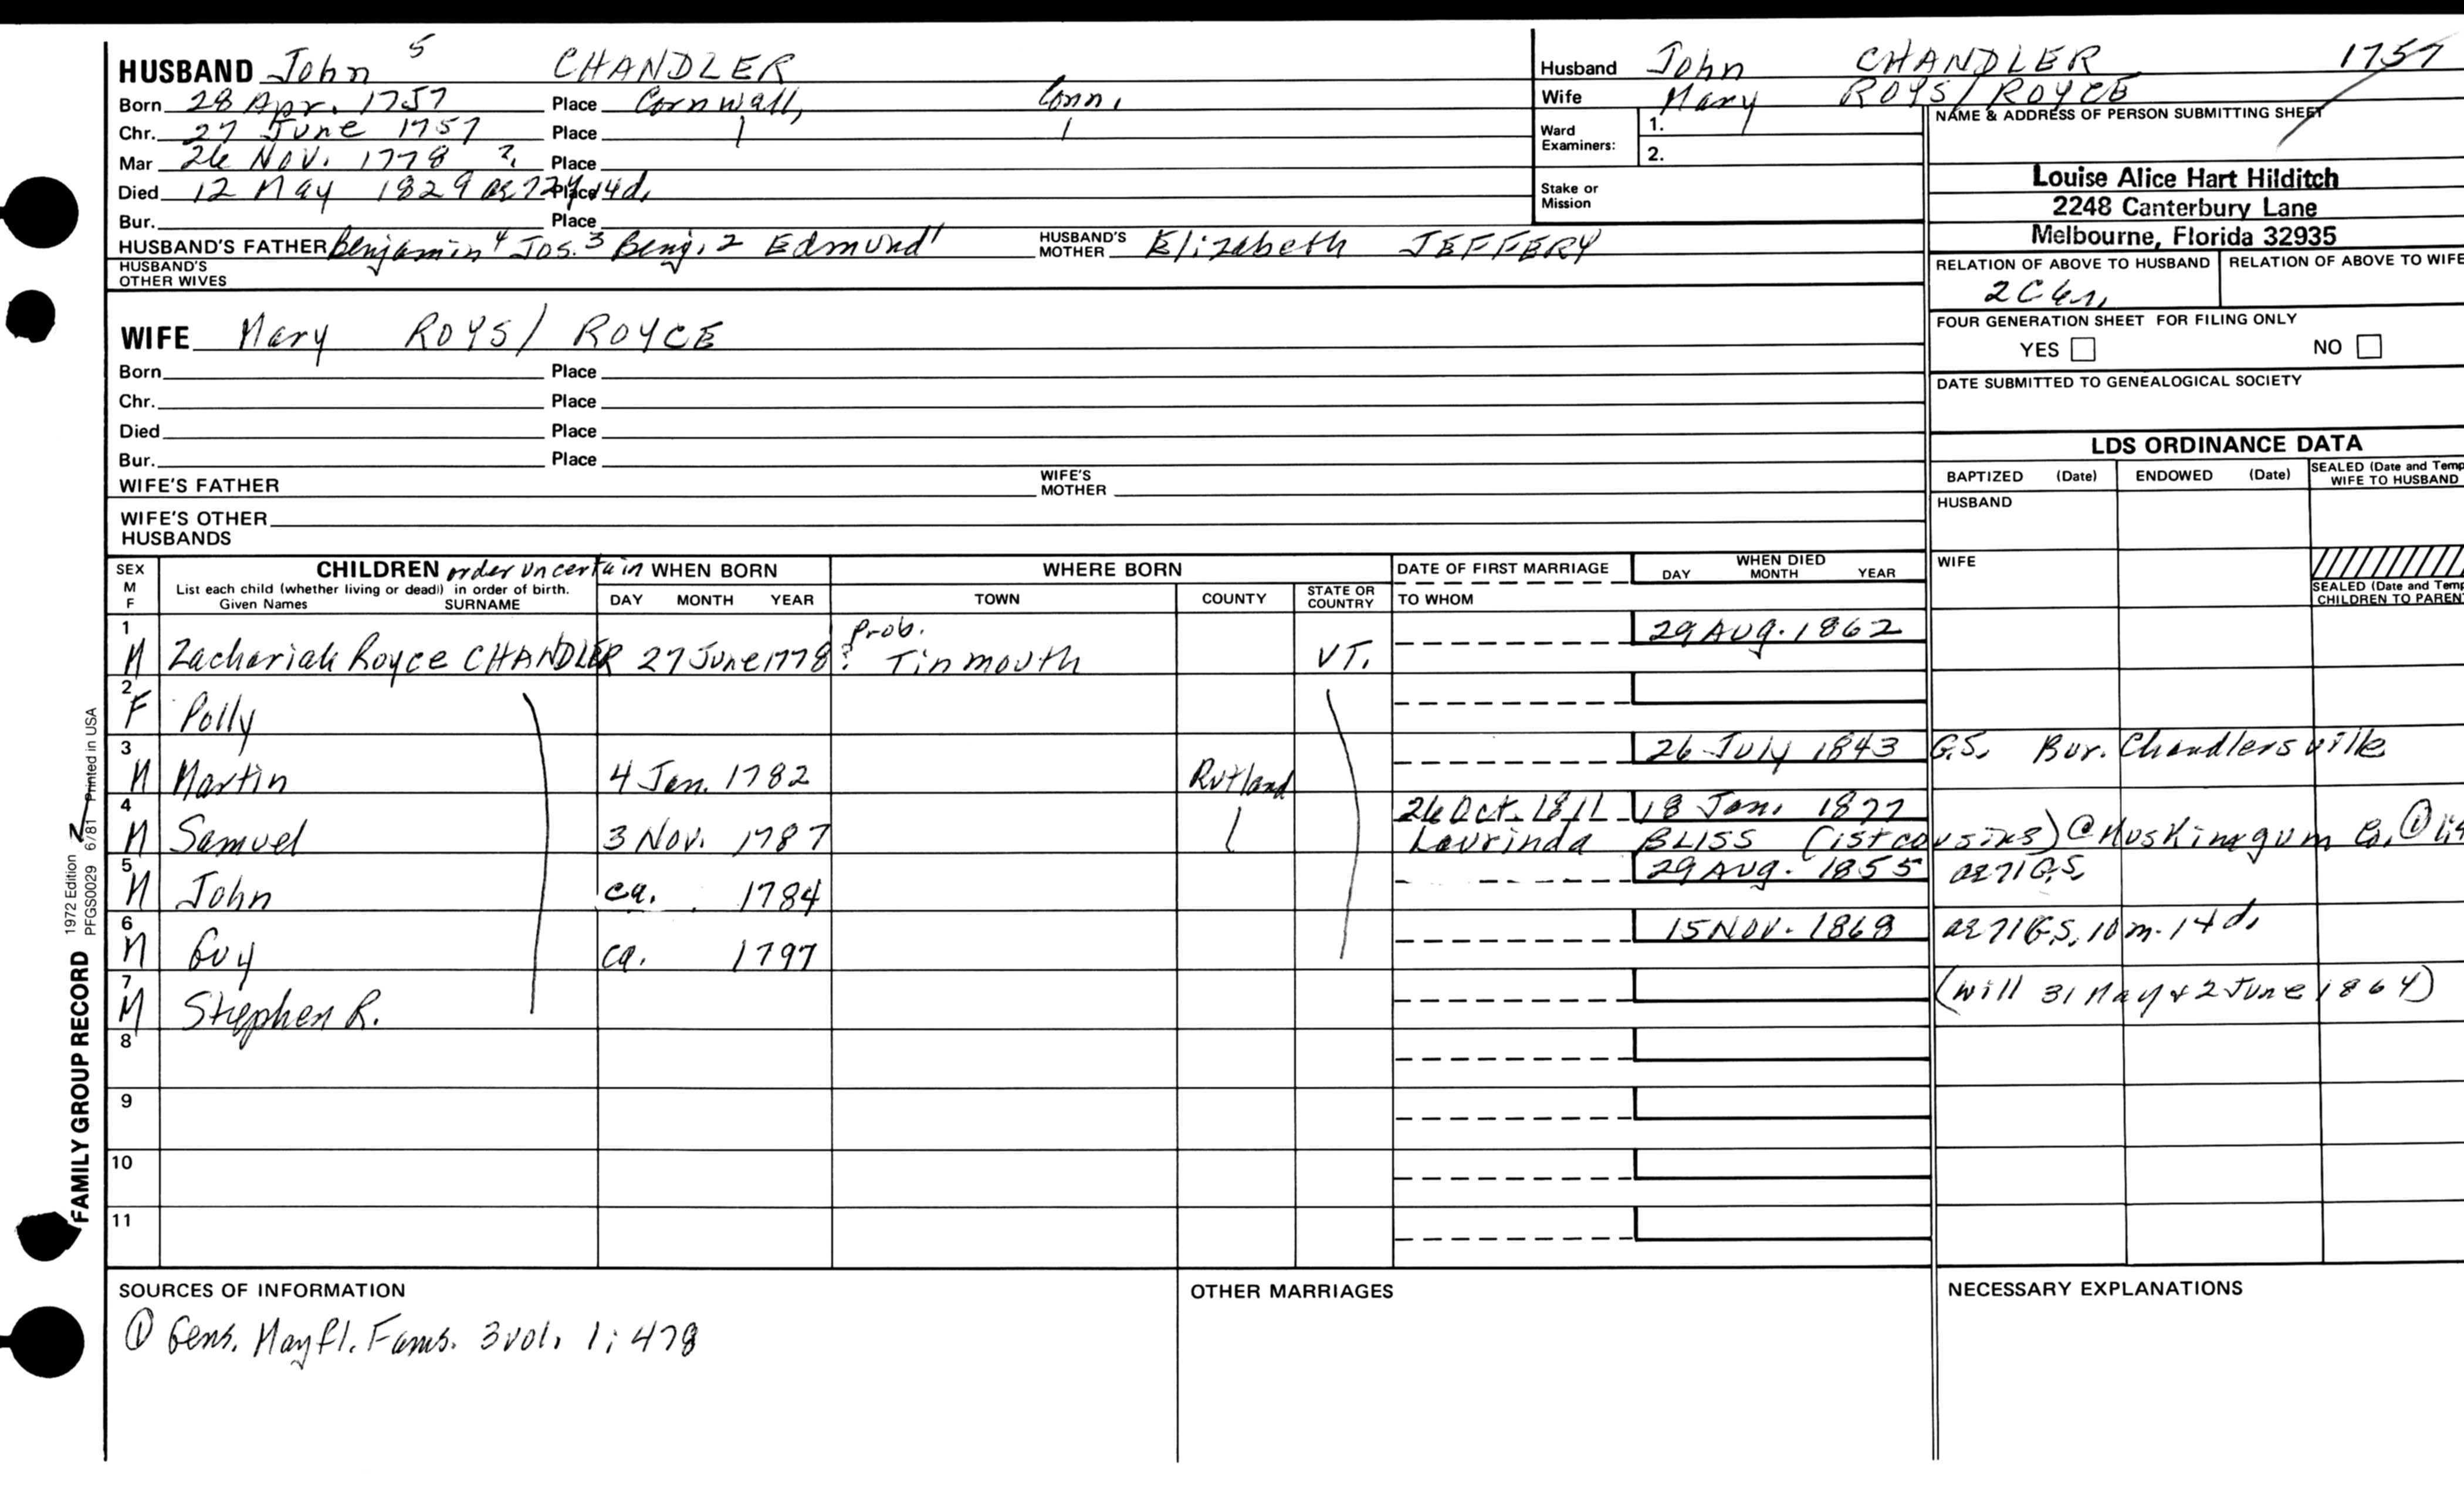 HUSBAND John 5 CHANDLER
Born 28 Apr. 1757 Place Cornwall, Conn.
Chr. 27 June 1757 Place
Mar 26 Nov. 1778 ?. Place
Died 12 May 1829 ae 72y 14d. Place
Bur. Place
HUSBAND'S FATHER Benjamin 4 Jos. 3 Benj. 2 Edmund 1 HUSBAND'S MOTHER Elizabeth JEFFERY
HUSBAND'S OTHER WIVES
Husband John CHANDLER 1757
Wife Mary ROYS/ROYCE
Ward Examiners: 1.
2.
Stake or Mission
NAME & ADDRESS OF PERSON SUBMITTING SHEET
Louise Alice Hart Hilditch
2248 Canterbury Lane
Melbourne, Florida 32935
RELATION OF ABOVE TO HUSBAND RELATION OF ABOVE TO WIFE
FOUR GENERATION SHEET FOR FILING ONLY
YES NO
DATE SUBMITTED TO GENEALOGICAL SOCIETY
WIFE Mary ROYS/ ROYCE
Born Place
Chr. Place
Died Place
Bur. Place
WIFE'S FATHER WIFE'S MOTHER
WIFE'S OTHER HUSBANDS
LDS ORDINANCE DATA
BAPTIZED (Date) ENDOWED (Date) SEALED (Date and Temp WIFE TO HUSBAND
HUSBAND
WIFE
SEALED (Date and Temp CHILDREN TO PARENT
SEX M F CHILDREN order uncertain WHEN BORN WHERE BORN DATE OF FIRST MARRIAGE WHEN DIED
List each child (whether living or dead) in order of birth.
Given Names SURNAME DAY MONTH YEAR TOWN COUNTY STATE OR COUNTRY TO WHOM DAY MONTH YEAR
1 M Zachariah Royce CHANDLER 27 June 1778? Prob. Tinmouth VT. 29 Aug. 1862
2 F Polly
3 M Martin 4 Jan. 1782 Rutland 26 July 1843 G.S. Bur. Chandlersville
4 M Samuel 3 Nov. 1787 26 Oct. 1811 18 Jan. 1877
Laurinda BLISS (1st cousins) @ Muskinegum Co. ①
5 M John ca. 1784 29 Aug. 1855 ae 71 G.S.
6 M Guy ca. 1797 15 Nov. 1869 ae 71 G.S. 10 m. 14 d.
7 M Stephen R. (Will 31 May & 2 June 1864)
8
9
10
11
SOURCES OF INFORMATION
① Gens. Mayfl. Fams. 3 vol. 1:478
OTHER MARRIAGES
NECESSARY EXPLANATIONS
FAMILY GROUP RECORD 1972 Edition PFGS0029 6/81 Printed in USA